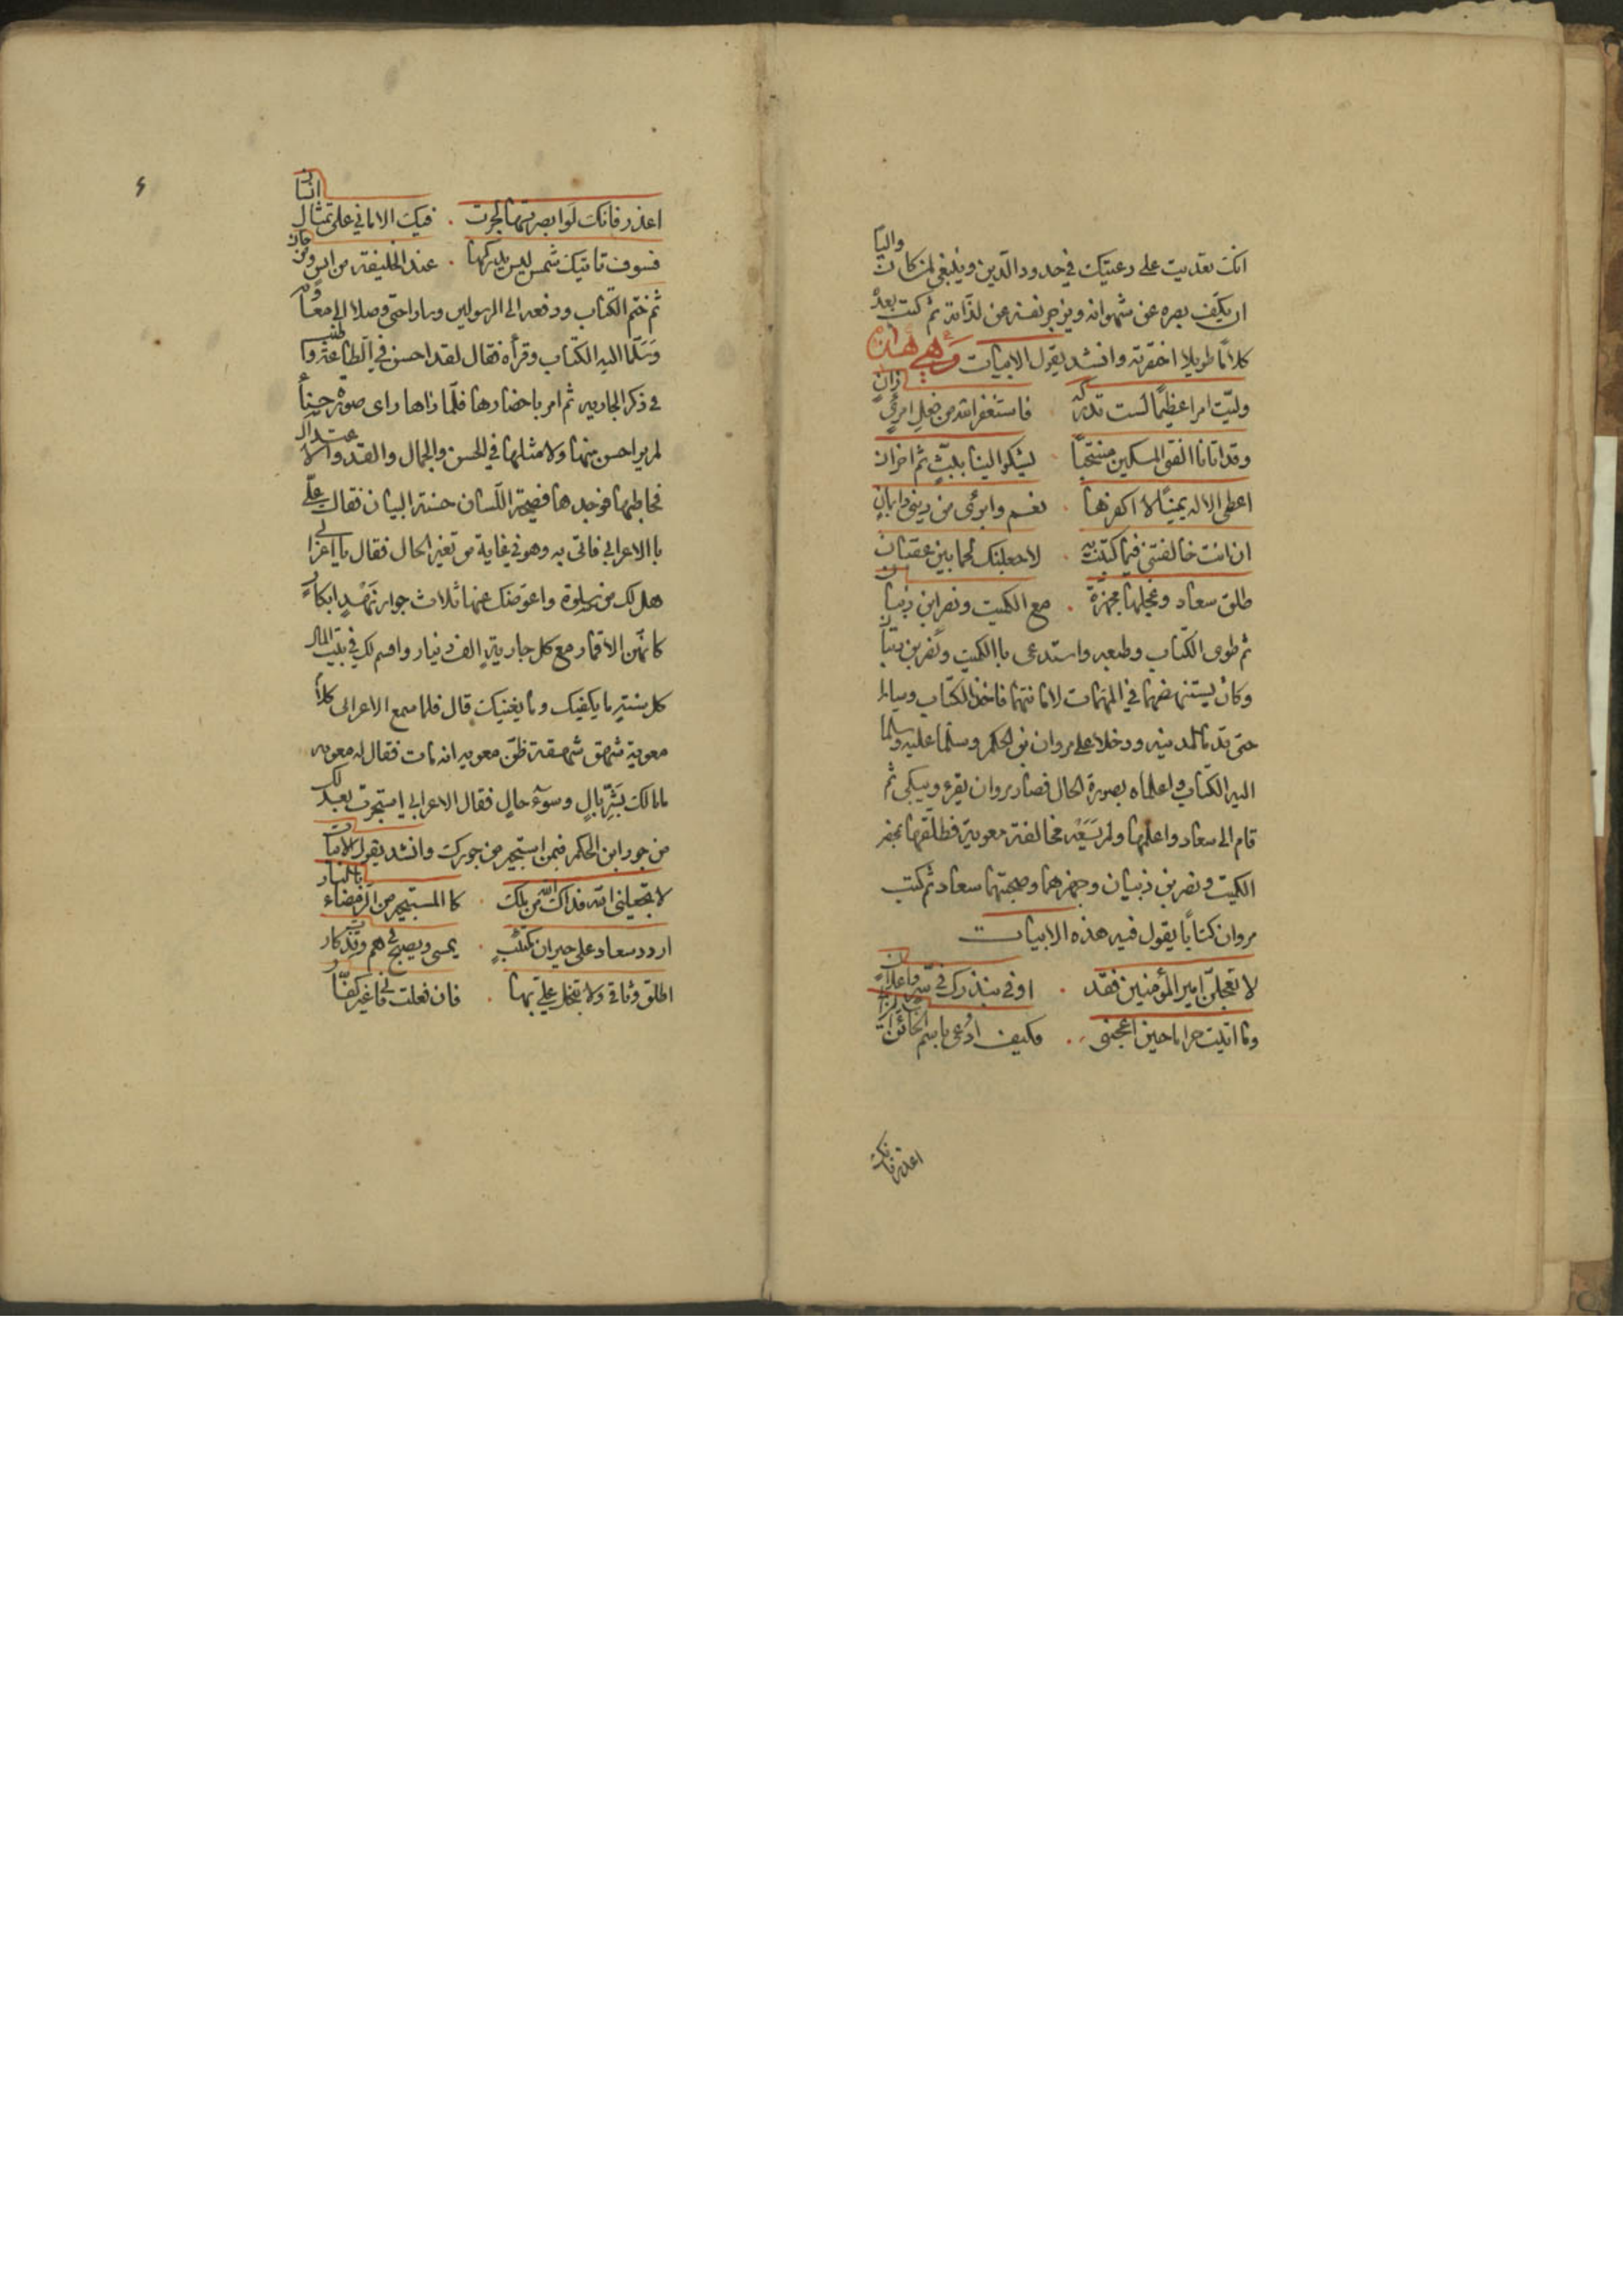 انك تعديت على رعيتك في حدود الدين وينبغي لمن كان واليًا
ان يكف بصره عن شهواته ويزجر نفسه عن لذاته ثم كتب بعده
كلامًا طويلا اختصرته وانشد يقول الابيات وهي هذه
وليت امرا عظيمًا لست تدركه . فاستغفر الله من فعل امرئ زان
وقد اتانا الفتى المسكين منتحبًا . يشكو الينا ببث ثم احزان
اعطى الاله يمينًا لا اكفرها . نعم وابرئ من ديني وايمان
ان انت خالفتني فيما كتبت به . لاجعلنك لحما بين عقبان
طلق سعاد وعجلها مجهزة . مع الكميت ونصر ابن ذبيان
ثم طوى الكتاب وطبعه واستدعى باالكميت ونصر بن ذبيان
وكان يستنهضهما في المهمات لامانتهما فاخذا الكتاب وسارا
حتى قدما المدينه ودخلا على مروان بن الحكم وسلما عليه وسلما
اليه الكتاب واعلماه بصورة الحال فصار مروان يقرء ويبكي ثم
قام الى سعاد واعلمها ولم يسعه مخالفة معوية فطلقها بمحضر
الكميت ونصر بن ذبيان وجهزهما وصحبتهما سعاد ثم كتب
مروان كتابًا يقول فيه هذه الابيات
لا تعجلن امير المؤمنين فقد . اوفي بنذرك في سر واعلان
وما اتيت حراما حين اعجبني . فكيف ادعى باسم الخائن الزاني
اعذر فانك
اعذر فانك لو ابصرتها لجرت . فيك الاماني على تمثال انسان
فسوف تاتيك شمس ليس يدركها . عند الخليفة من انس ومن جان
ثم ختم الكتاب ودفعه الى الرسولين وسارا حتى وصلا الى معوية
وسلما اليه الكتاب وقرأه فقال لقد احسن في الطاعة واطنب
في ذكر الجاريه ثم امر باحضارها فلما راها راى صورة حسناء
لم ير احسن منها ولا مثلها في الحسن والجمال والقد والاعتدال
فخاطبها فوجدها فصيحة اللسان حسنة البيان فقال علي
باالاعرابي فاتى به وهو في غاية من تغير الحال فقال يا اعرابي
هل لك من سلوة واعوضك عنها ثلاث جوار نهد ابكار
كانهن الاقمار مع كل جارية الف دينار واقسم لك في بيت المال
كل سنة ما يكفيك وما يغنيك قال فلما سمع الاعرابي كلام
معوية شهق شهقة ظن معويه انه مات فقال له معويه
ما بالك بشر بال وسوء حال فقال الاعرابي استجرت بعدلك
من جور ابن الحكم فبمن استجير من جورك وانشد يقول الابيات
لا تجعلني الله فداك الله من ملك . كا المستجير من الرمضاء بالنار
اردد سعاد على حيران مكتئب . يمسي ويصبح في هم وتذكار
اطلق وثاقي ولا تبخل علي بها . فان فعلت فاني غير كفار